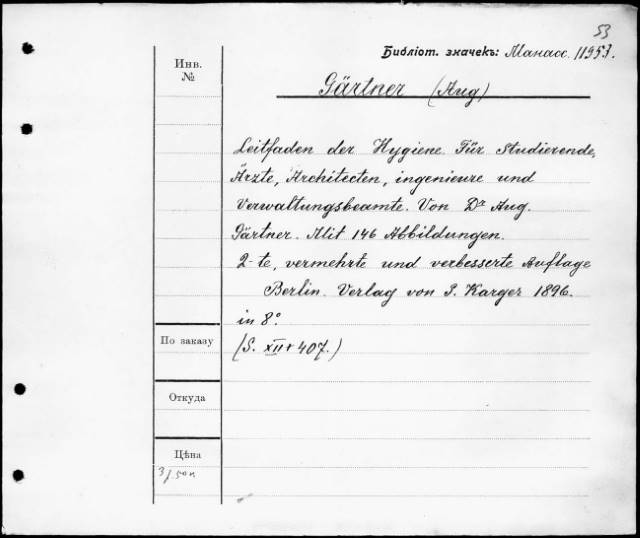 53
Библіот. значекъ: Манасс. 11953.
Инв.
№
Gärtner (Aug)
Leitfaden der Hygiene Für Studierende,
Ärzte, Architecten, ingenieure und
Verwaltungsbeamte. Von Dr Aug.
Gärtner. Mit 146 Abbildungen.
2-te, vermehrte und verbesserte Auflage
Berlin. Verlag von S. Karger 1896.
in 8°.
По заказу
(S. XII+407.)
Откуда
Цѣна
3 р. 50 к